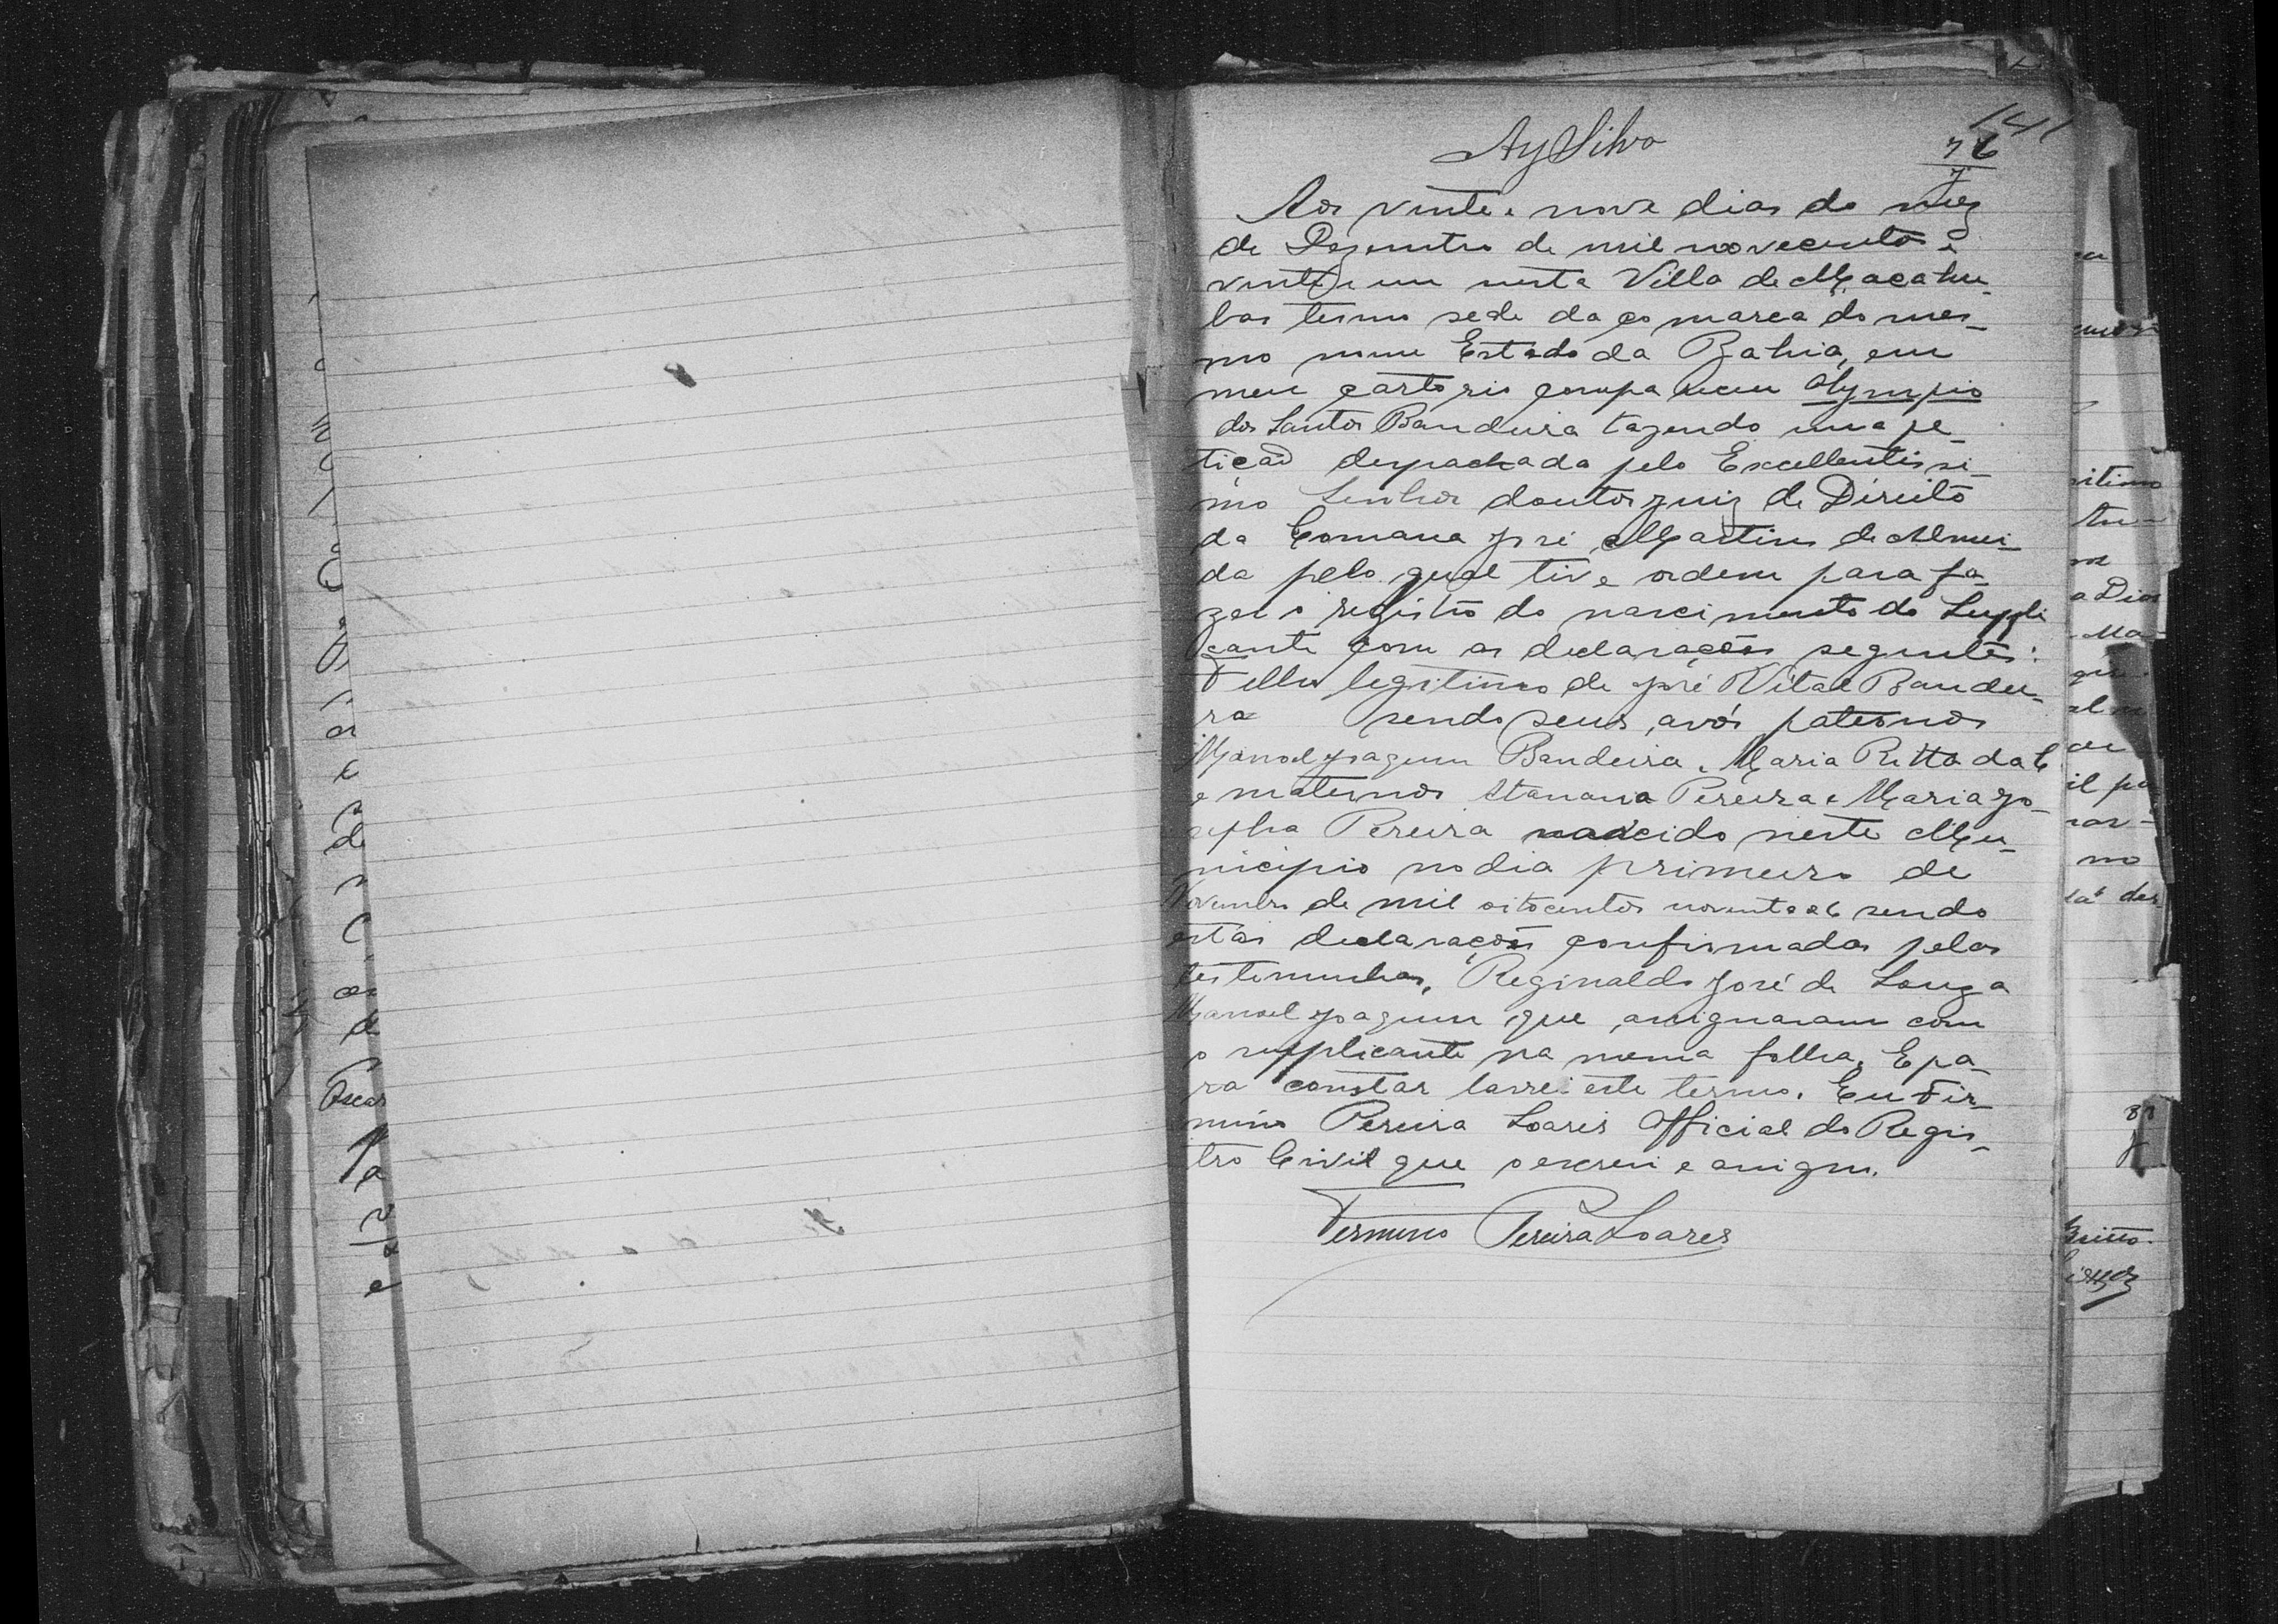 AySilva
141
76
Aos vinte e nove dias do mez
de Dezembro de mil novecentos e
vinte e um nesta Villa de Macahu-
bas termo sede da comarca do mes-
mo nome Estado da Bahia, em
meu cartorio compareceu Olympio
dos Santos Bandeira trazendo uma pe-
tição despachada pelo Excellentissi-
mo Senhor doutor juiz de Direito
da Comarca José Martins de Almei-
da pelo qual tive ordem para fa-
zer o registro do nascimento do Suppli
cante com as declarações seguintes:
Filho legitimo de José Vital Bandei-
ra sendo seus avós paternos
Manoel Joaquim Bandeira e Maria Ritta da C
e maternos Pereira e Maria Jo-
sepha Pereira nascido neste Mu-
nicipio no dia primeiro de
Novembro de mil oitocentos noventa e 6 sendo
estas declarações confirmadas pelas
testemunhas, Reginaldo José de Souza
Manoel Joaquim que assignaram com
o supplicante na mesma folha. E pa-
ra constar lavrei este termo. Eu Fir-
mino Pereira Soares Official do Regis-
tro Civil que o escrevi e assigno.
Fermino Pereira Soares